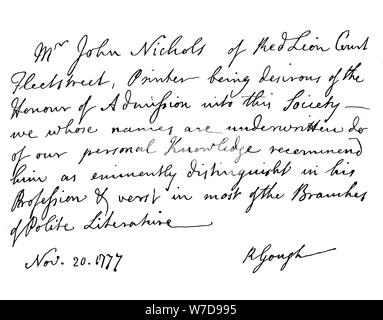 Mr John Nichols of Red Lion Court
Fleetstreet, Printer being desirous of the
Honour of Admission into this Society —
we whose names are underwritten do
of our personal Knowledge recommend
him as eminently distinguisht in his
Profession & verst in most of the Branches
of Polite Literature
Nov. 20. 1777 RGough
alamy
Image ID: W7D995
www.alamy.com